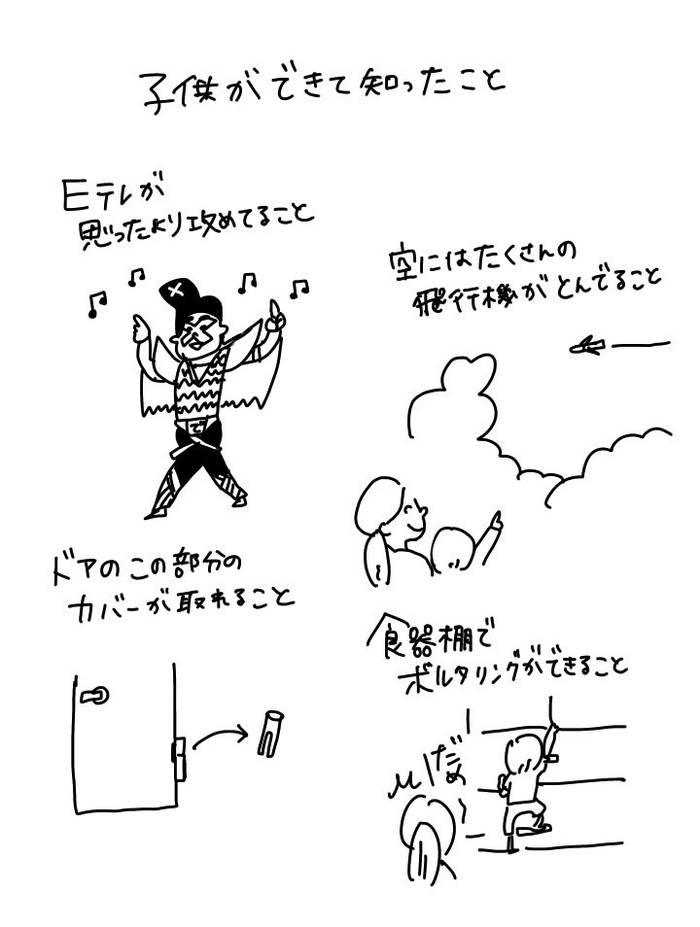 子供ができて知ったこと
Eテレが
思ったより攻めてること
で
空にはたくさんの
飛行機がとんでること
ドアのこの部分の
カバーが取れること
食器棚で
ボルタリングができること
だめ